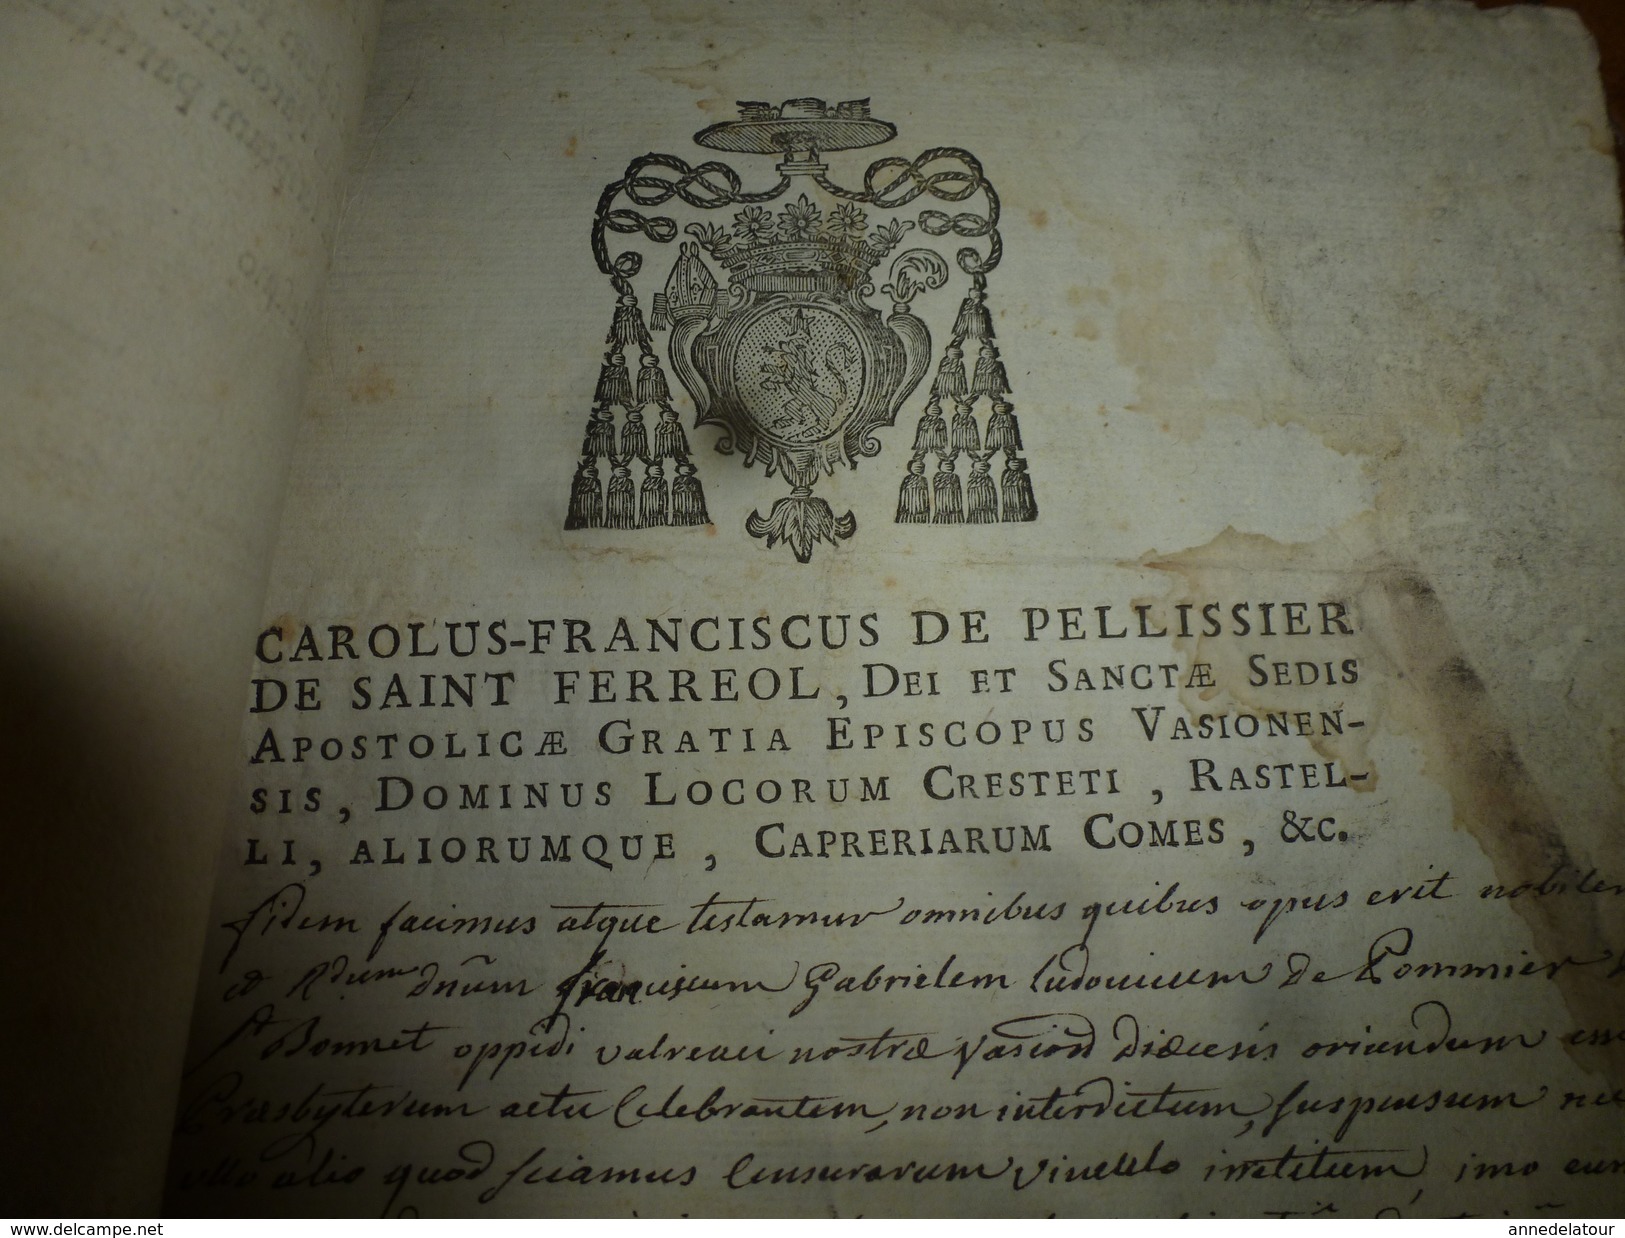 CAROLUS-FRANCISCUS DE PELLISSIER
DE SAINT FERREOL, DEI ET SANCTÆ SEDIS
APOSTOLICÆ GRATIA EPISCOPUS VASIONEN-
SIS, DOMINUS LOCORUM CRESTETI, RASTEL-
LI, ALIORUMQUE, CAPRERIARUM COMES, &c.
fidem facimus atque testamur omnibus quibus opus erit nobilem
et Rdum dnũm franciscum Gabrielem Ludovicum de Pommier
St Bonnet oppidi valreaci nostræ vasion diœcesis oriundum
Præsbyterum actu Celebrantem, non interdictum, suspensum nec
ullo alio quod sciamus Censurarum vinculo irretitum, imo eum
www.delcampe.net
annedelatour